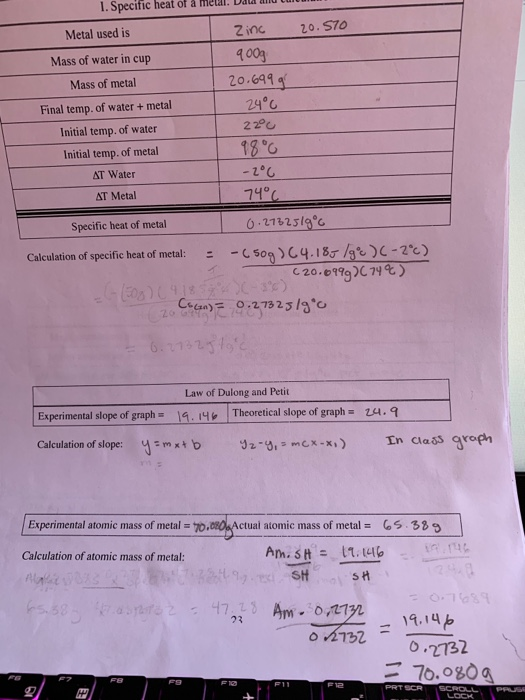 1. Specific heat of a metal.
Metal used is Zinc 20.570
Mass of water in cup 900g
Mass of metal 20.699g
Final temp. of water + metal 24°C
Initial temp. of water 22°C
Initial temp. of metal 98°C
ΔT Water -2°C
ΔT Metal 74°C
Specific heat of metal 0.2732J/g°C
Calculation of specific heat of metal: = -(50g)(4.18J/g°c)(-2°c)
(20.699g)(74°c)
Cs(zn) = 0.2732J/g°C
Law of Dulong and Petit
Experimental slope of graph = 19.146 Theoretical slope of graph = 24.9
Calculation of slope: y=mx+b y₂-y₁=m(x-x₁) In class graph
Experimental atomic mass of metal = 70.080g Actual atomic mass of metal = 65.38g
Calculation of atomic mass of metal: Am. SH = 19.146
SH SH
47.28 Am. 0.2732 = 19.146
0.2732 0.2732
= 70.080g
F6 F7 F8 F9 F10 F11 F12 PRTSCR SCROLL
LOCK